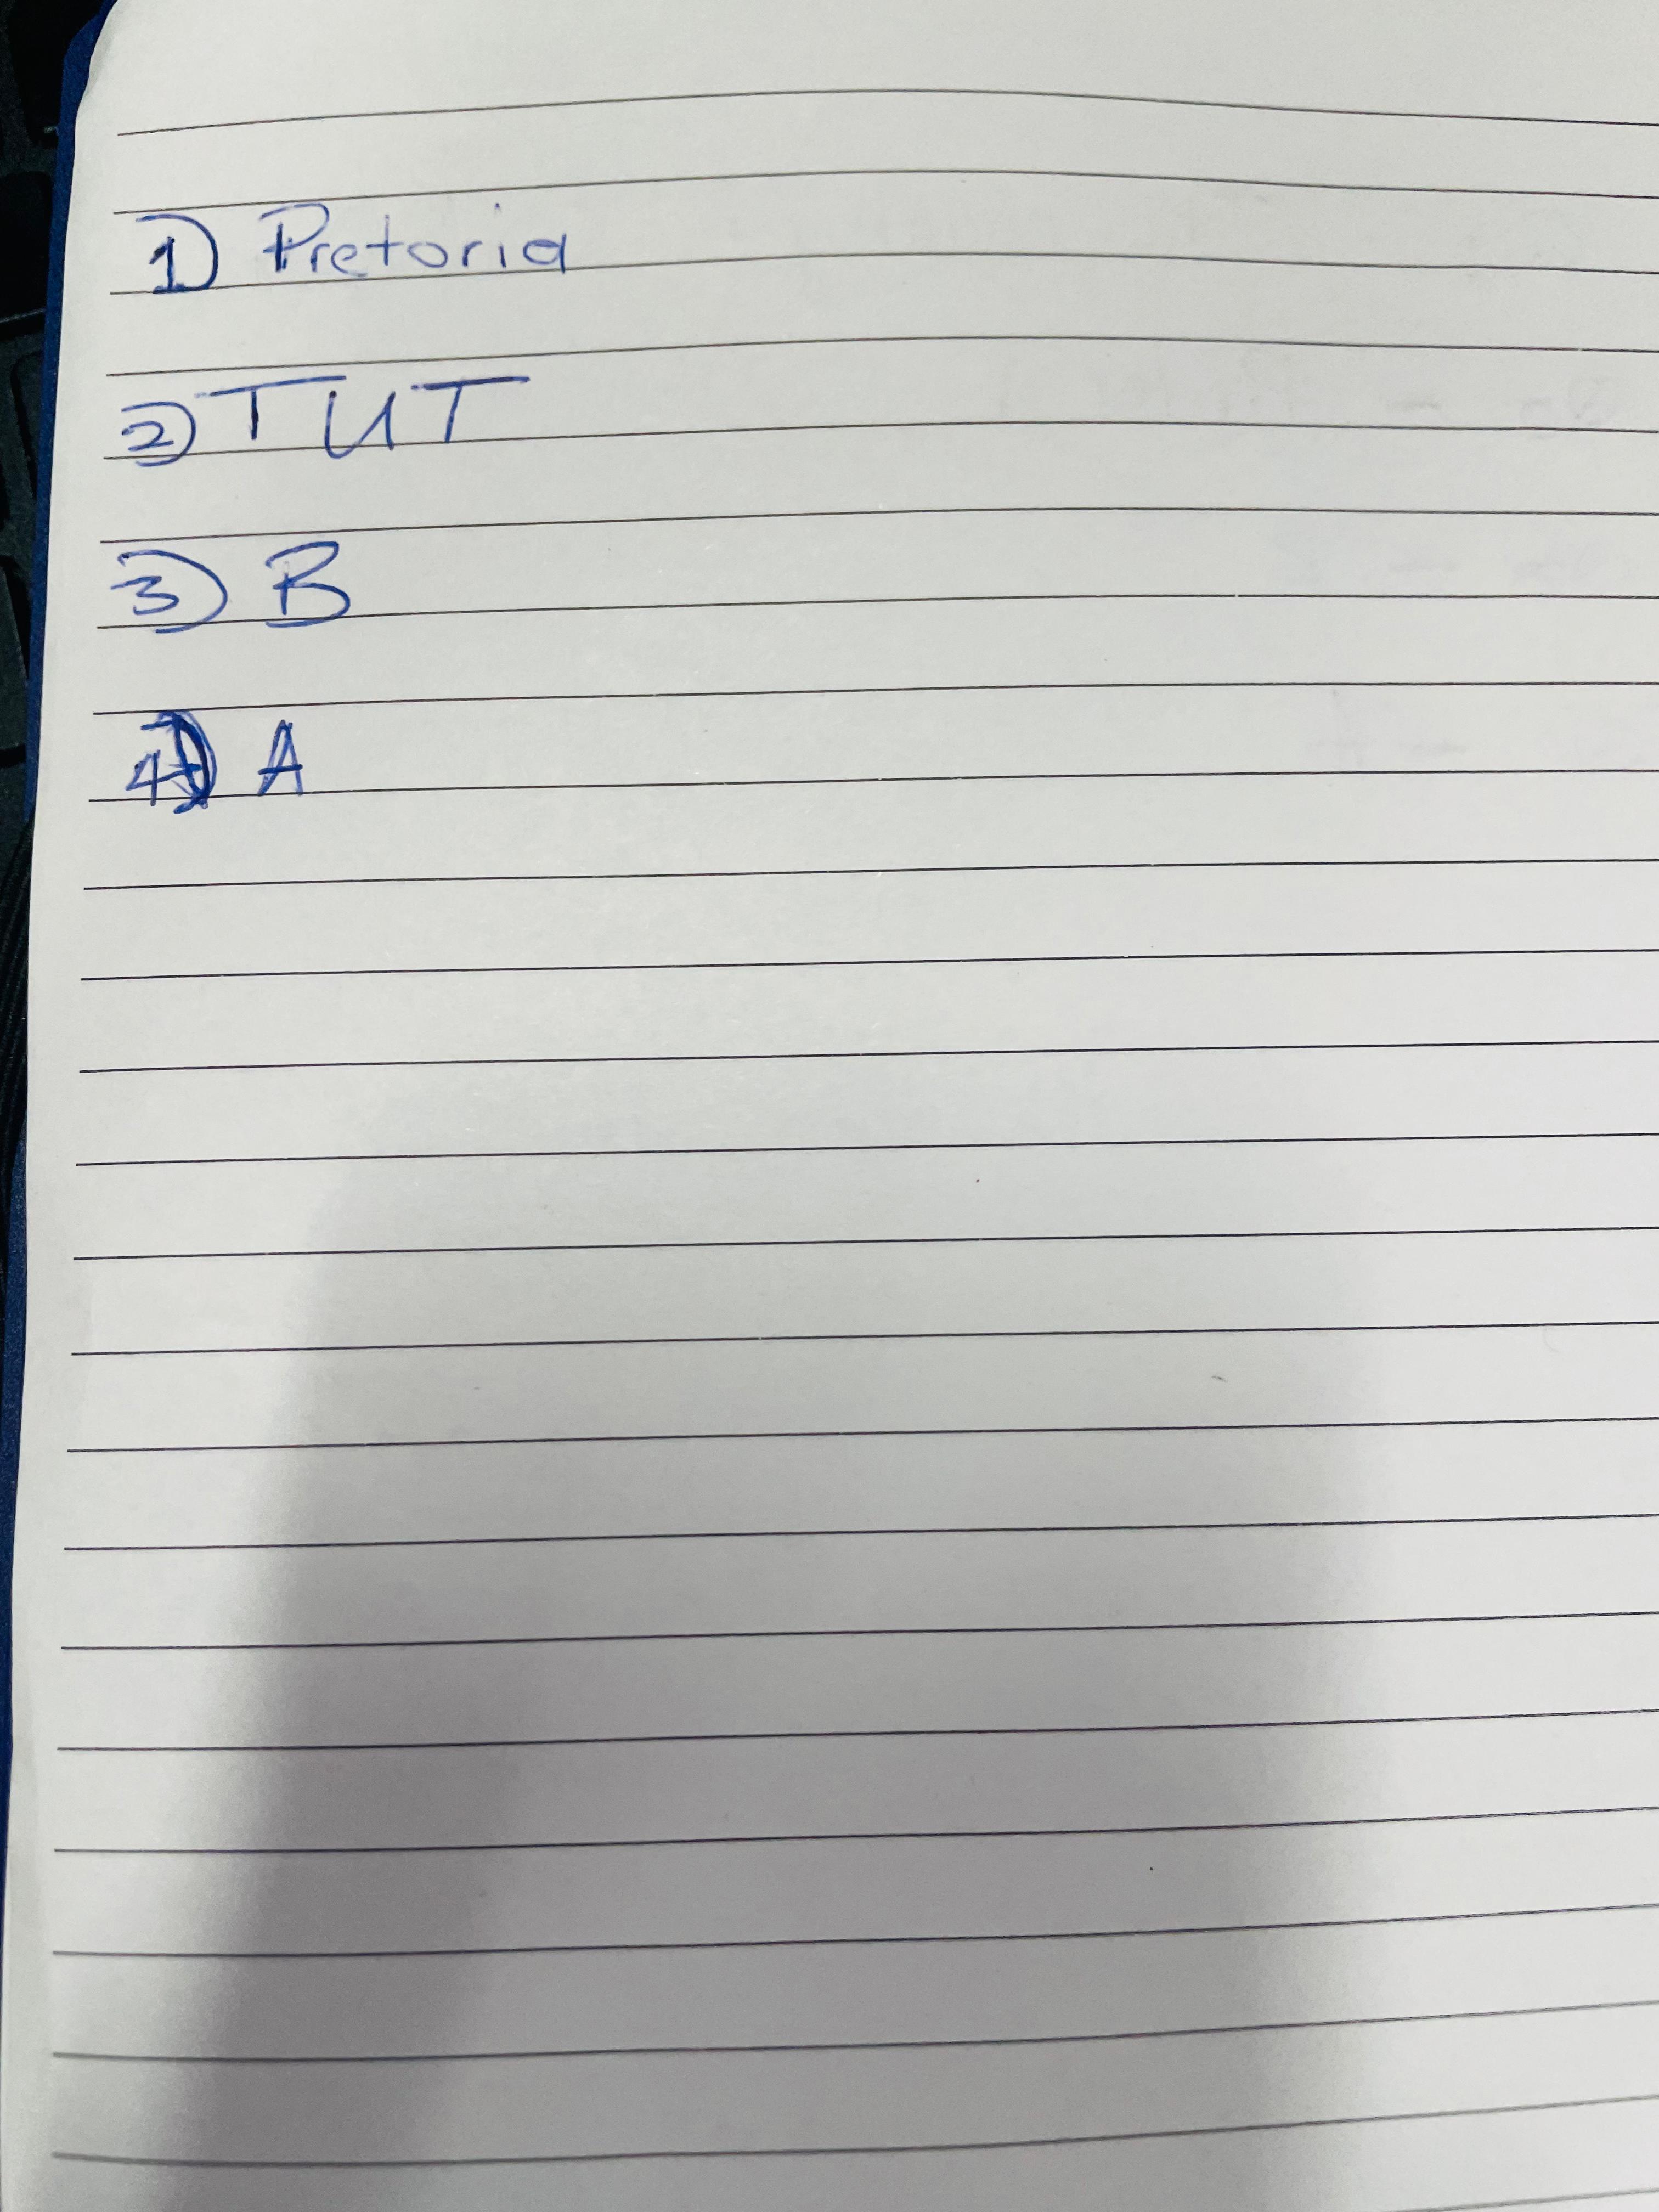 1) Pretoria
2) TUT
3) B
4) A